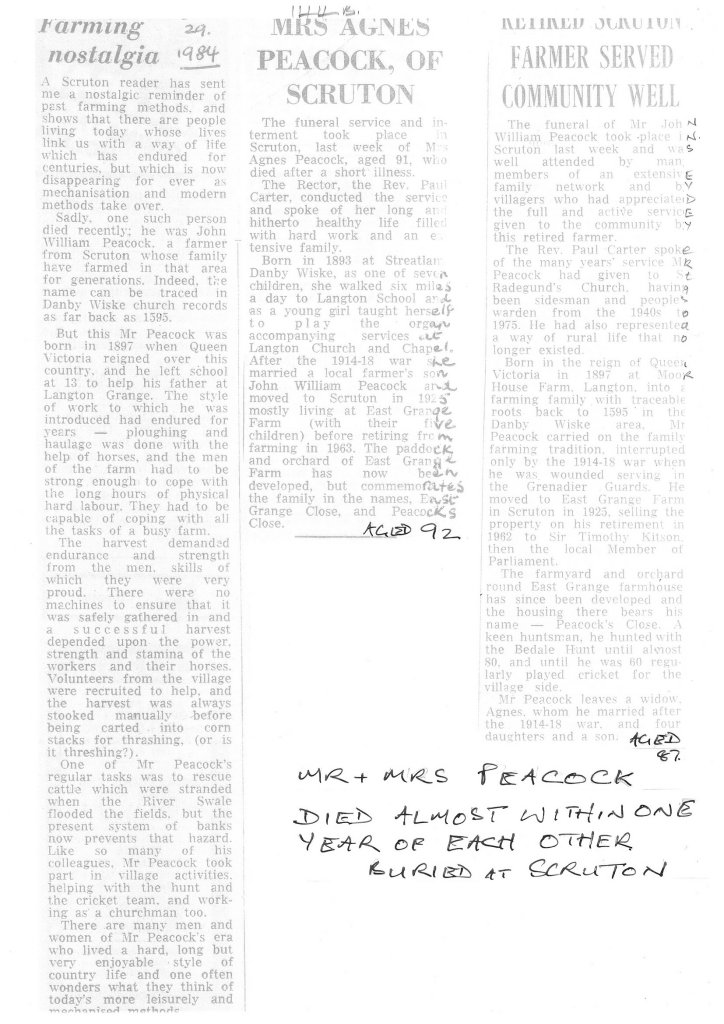 144 B.
Farming
nostalgia
29.
1984
A Scruton reader has sent
me a nostalgic reminder of
past farming methods, and
shows that there are people
living today whose lives
link us with a way of life
which has endured for
centuries, but which is now
disappearing for ever as
mechanisation and modern
methods take over.
Sadly, one such person
died recently; he was John
William Peacock, a farmer
from Scruton whose family
have farmed in that area
for generations. Indeed, the
name can be traced in
Danby Wiske church records
as far back as 1595.
But this Mr Peacock was
born in 1897 when Queen
Victoria reigned over this
country, and he left school
at 13 to help his father at
Langton Grange. The style
of work to which he was
introduced had endured for
years — ploughing and
haulage was done with the
help of horses, and the men
of the farm had to be
strong enough to cope with
the long hours of physical
hard labour. They had to be
capable of coping with all
the tasks of a busy farm.
The harvest demanded
endurance and strength
from the men, skills of
which they were very
proud. There were no
machines to ensure that it
was safely gathered in and
a successful harvest
depended upon the power,
strength and stamina of the
workers and their horses.
Volunteers from the village
were recruited to help, and
the harvest was always
stooked manually before
being carted into corn
stacks for thrashing, (or is
it threshing?).
One of Mr Peacock's
regular tasks was to rescue
cattle which were stranded
when the River Swale
flooded the fields, but the
present system of banks
now prevents that hazard.
Like so many of his
colleagues, Mr Peacock took
part in village activities,
helping with the hunt and
the cricket team, and work-
ing as a churchman too.
There are many men and
women of Mr Peacock's era
who lived a hard, long but
very enjoyable style of
country life and one often
wonders what they think of
today's more leisurely and
mechanised methods.
MRS AGNES
PEACOCK, OF
SCRUTON
The funeral service and in-
terment took place in
Scruton, last week of Mrs
Agnes Peacock, aged 91, who
died after a short illness.
The Rector, the Rev. Paul
Carter, conducted the service
and spoke of her long and
hitherto healthy life filled
with hard work and an ex-
tensive family.
Born in 1893 at Streatlam
Danby Wiske, as one of seven
children, she walked six miles
a day to Langton School and
as a young girl taught herself
to play the organ
accompanying services at
Langton Church and Chapel.
After the 1914-18 war she
married a local farmer's son
John William Peacock and
moved to Scruton in 1925
mostly living at East Grange
Farm (with their five
children) before retiring from
farming in 1963. The paddock
and orchard of East Grange
Farm has now been
developed, but commemorates
the family in the names, East
Grange Close, and Peacocks
Close.
AGED 92
RETIRED SCRUTON
FARMER SERVED
COMMUNITY WELL
The funeral of Mr John
William Peacock took place in
Scruton last week and was
well attended by many
members of an extensive
family network and by
villagers who had appreciated
the full and active service
given to the community by
this retired farmer.
The Rev. Paul Carter spoke
of the many years' service Mr
Peacock had given to St
Radegund's Church, having
been sidesman and peoples
warden from the 1940s to
1975. He had also represented
a way of rural life that no
longer existed.
Born in the reign of Queen
Victoria in 1897 at Moor
House Farm, Langton, into a
farming family with traceable
roots back to 1595 in the
Danby Wiske area, Mr
Peacock carried on the family
farming tradition, interrupted
only by the 1914-18 war when
he was wounded serving in
the Grenadier Guards. He
moved to East Grange Farm
in Scruton in 1925, selling the
property on his retirement in
1962 to Sir Timothy Kitson,
then the local Member of
Parliament.
The farmyard and orchard
round East Grange farmhouse
has since been developed and
the housing there bears his
name — Peacock's Close. A
keen huntsman, he hunted with
the Bedale Hunt until almost
80, and until he was 60 regu-
larly played cricket for the
village side.
Mr Peacock leaves a widow,
Agnes, whom he married after
the 1914-18 war, and four
daughters and a son.
AGED
87.
MR + MRS PEACOCK
DIED ALMOST WITHIN ONE
YEAR OF EACH OTHER
BURIED AT SCRUTON